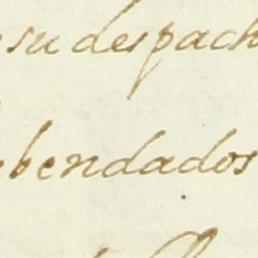 su despach
bendados